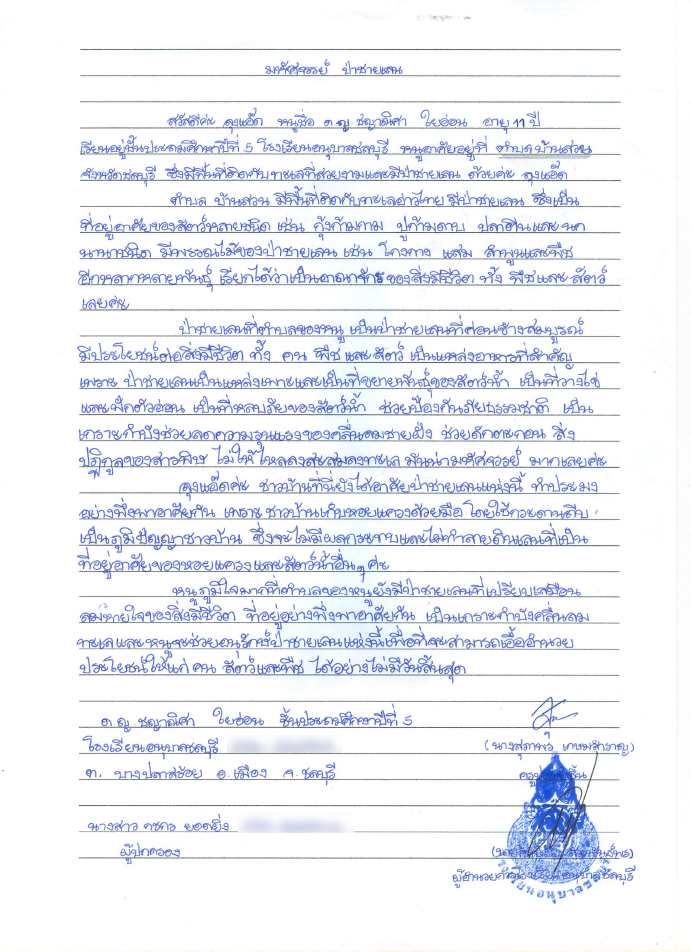 มหัศจรรย์ ป่าชายเลน
สวัสดีค่ะ ลุงแอ๊ด หนูชื่อ ด.ญ. ชญาณิศา ใยอ่อน อายุ 11 ปี
เรียนอยู่ชั้นประถมศึกษาปีที่ 5 โรงเรียนอนุบาลชลบุรี หนูอาศัยอยู่ที่ ตำบลบ้านสวน
จังหวัดชลบุรี ซึ่งมีพื้นที่ติดกับทะเลที่สวยงามและมีป่าชายเลน ด้วยค่ะ ลุงแอ๊ด
ตำบล บ้านสวน มีพื้นที่ติดกับทะเลอ่าวไทย มีป่าชายเลน ซึ่งเป็น
ที่อยู่อาศัยของสัตว์หลายชนิด เช่น กุ้งก้ามกาม ปูก้ามดาบ ปลาตีนและนก
นานาชนิด มีพรรณไม้ของป่าชายเลน เช่น โกงกาง แสม ลำพูและพืช
อีกหลากหลายพันธุ์ เรียกได้ว่าเป็นอาณาจักรของสิ่งมีชีวิต ทั้ง พืชและ สัตว์
เลยค่ะ
ป่าชายเลนที่ตำบลของหนู เป็นป่าชายเลนที่ค่อนข้างสมบูรณ์
มีประโยชน์ต่อสิ่งมีชีวิต ทั้ง คน พืช และ สัตว์ เป็นแหล่งอาหารที่สำคัญ
เพราะ ป่าชายเลนเป็นแหล่งเพาะและเป็นที่ขยายพันธุ์ของสัตว์น้ำ เป็นที่วางไข่
และฟักตัวอ่อน เป็นที่หลบภัยของสัตว์น้ำ ช่วยป้องกันภัยธรรมชาติ เป็น
เกราะกำบังช่วยลดความรุนแรงของคลื่นลมชายฝั่ง ช่วยดักตะกอน สิ่ง
ปฏิกูลของสารพิษ ไม่ให้ไหลลงสะสมลงทะเล มันน่ามหัศจรรย์ มากเลยค่ะ
ลุงแอ๊ดค่ะ ชาวบ้านที่นี่ยังได้อาศัยป่าชายเลนแห่งนี้ ทำประมง
อย่างพึ่งพาอาศัยกัน เพราะ ชาวบ้านเก็บหอยแครงด้วยมือ โดยใช้กระดานถีบ
เป็นภูมิปัญญาชาวบ้าน ซึ่งจะไม่มีผลกระทบและไม่ทำลายดินเลนที่เป็น
ที่อยู่อาศัยของหอยแครงและสัตว์น้ำอื่นๆค่ะ
หนูภูมิใจมากที่ตำบลของหนูยังมีป่าชายเลนที่เปรียบเสมือน
ลมหายใจของสิ่งมีชีวิต ที่อยู่อย่างพึ่งพาอาศัยกัน เป็นเกราะกำบังคลื่นลม
ทะเลและหนูจะช่วยอนุรักษ์ป่าชายเลนแห่งนี้เพื่อที่จะสามารถเอื้ออำนวย
ประโยชน์ให้แก่ คน สัตว์และพืช ได้อย่างไม่มีวันสิ้นสุด
ด.ญ. ชญาณิศา ใยอ่อน ชั้นประถมศึกษาปีที่ 5
โรงเรียนอนุบาลชลบุรี
(นางสุภาพร เกษมสำราญ)
ต. บางปลาสร้อย อ.เมือง จ.ชลบุรี
นางสาว คชกร ยอดยิ่ง
ผู้ปกครอง
ผู้อำนวยการโรงเรียนอนุบาลชลบุรี